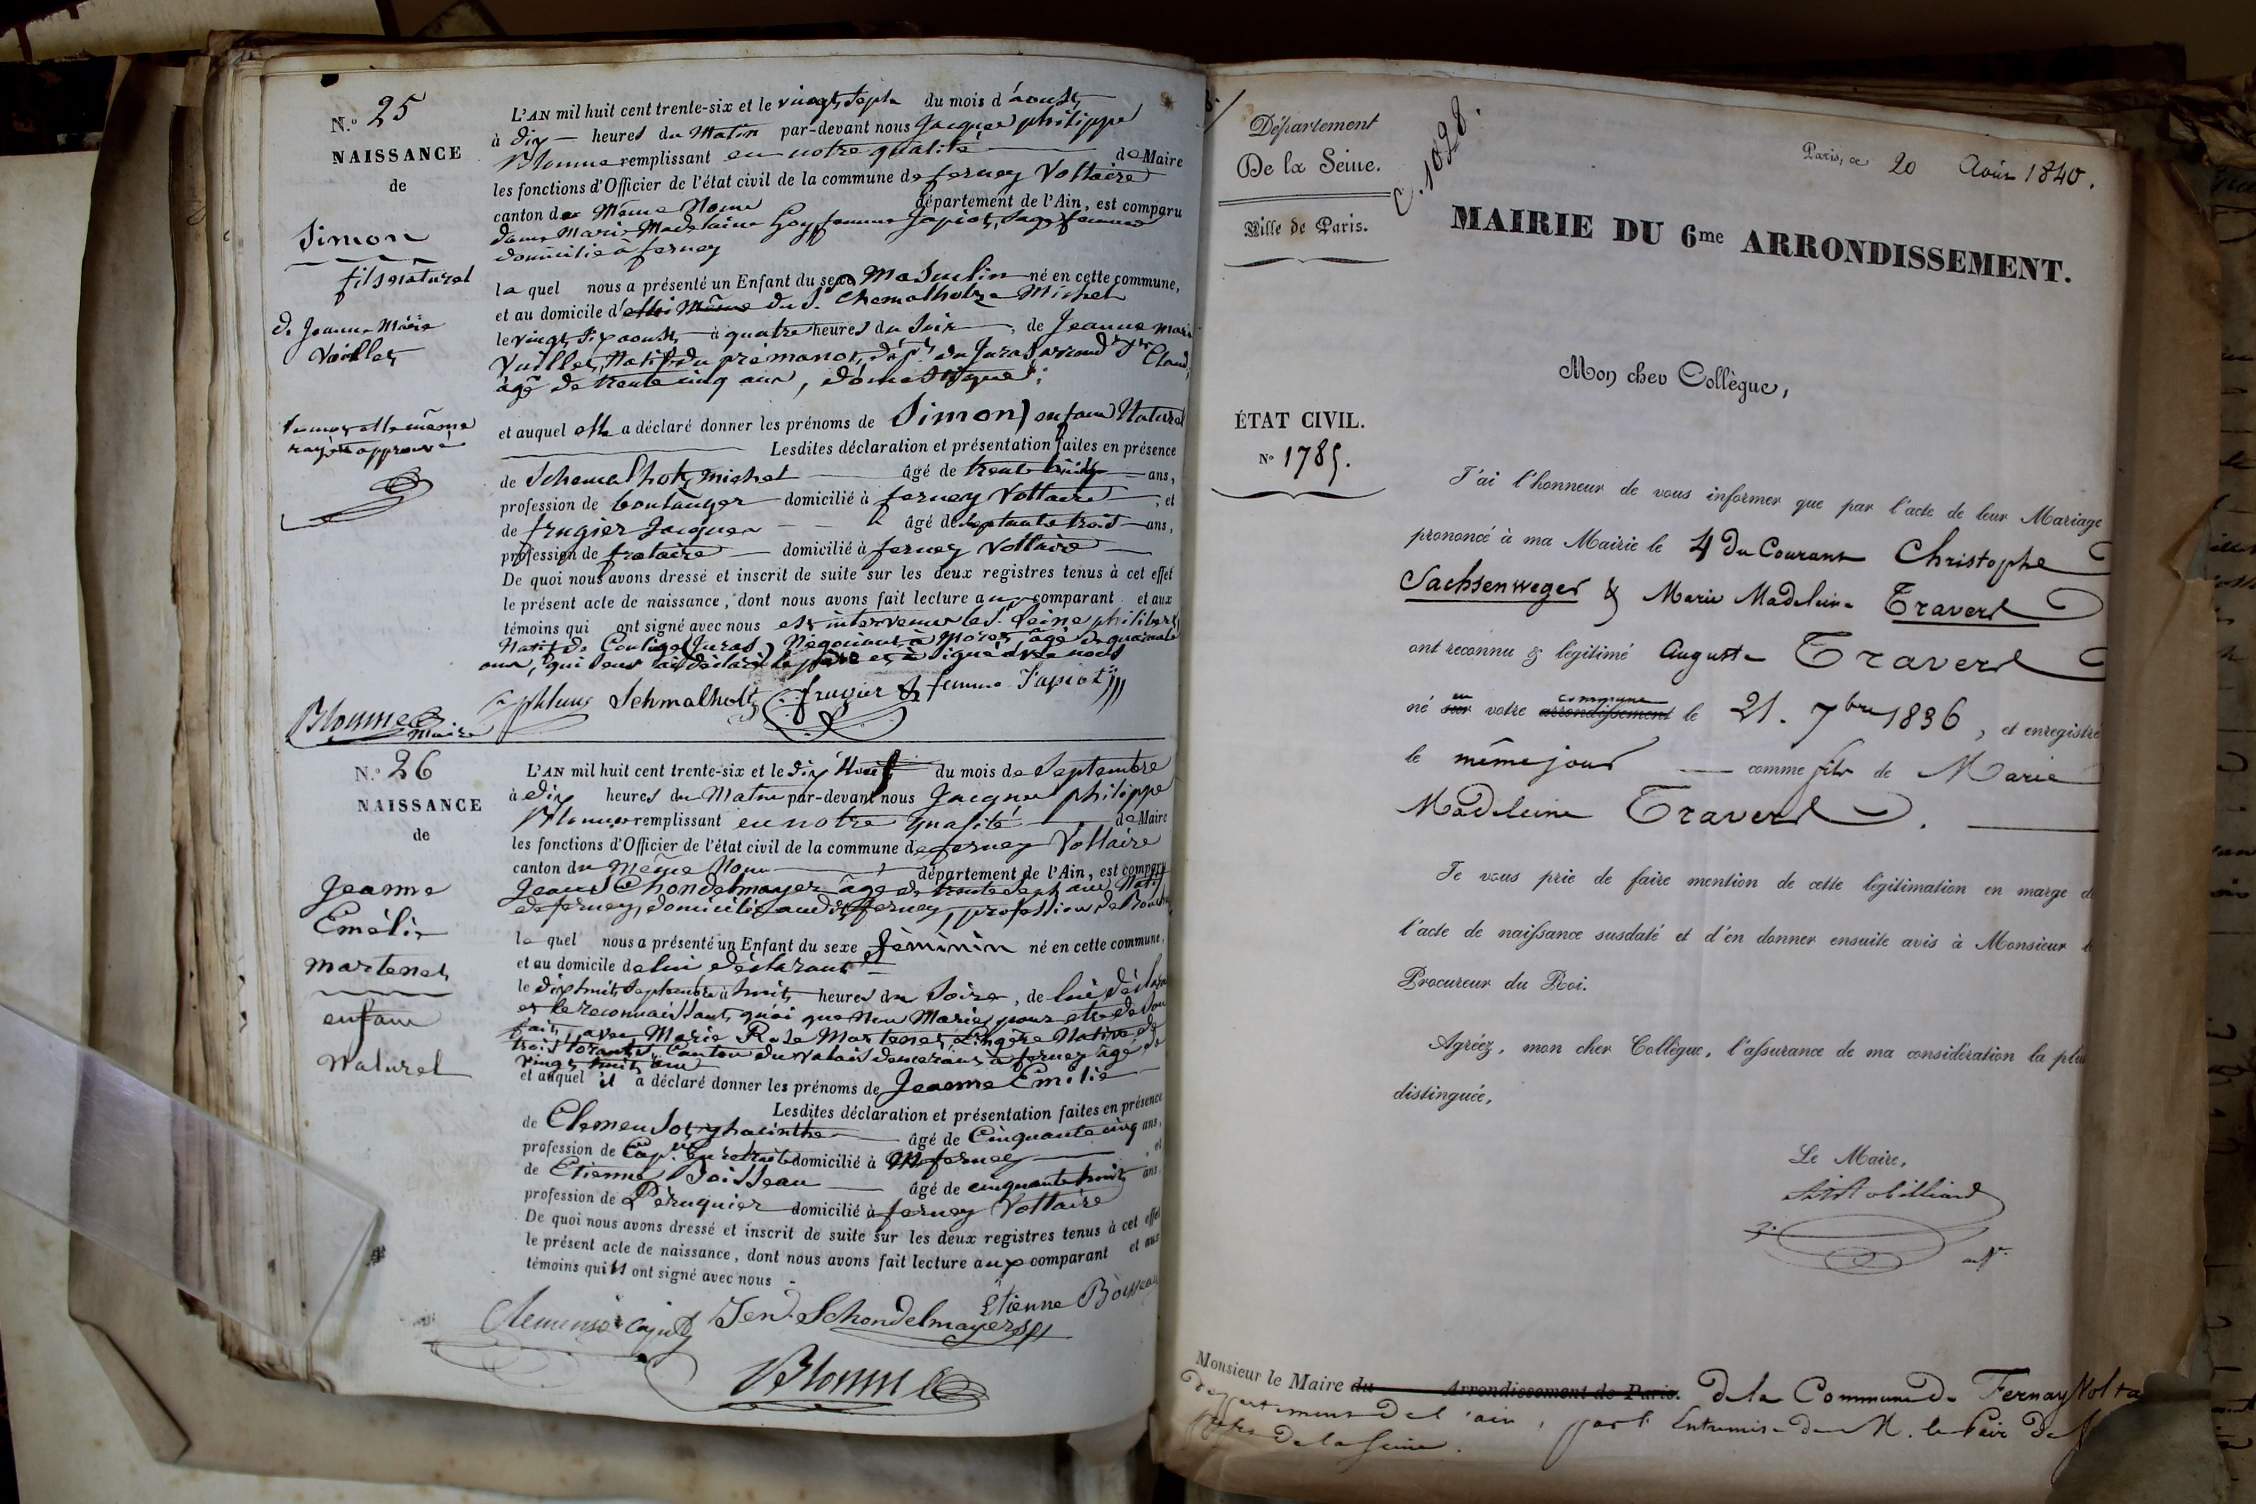 N.o 25
NAISSANCE
de
Simon
fils naturel
de Jeanne Marie
Vuillet
rayé approuvé
L'AN mil huit cent trente-six et le vingt sept du mois d'aoust
à dix heures du Matin par-devant nous Jacques philippe
Blonme remplissant en notre qualité de Maire
les fonctions d'Officier de l'état civil de la commune de ferney Voltaire
canton du Même Nom département de l'Ain, est comparu
dame Marie Madelaine Goy femme Japiot, sage femme
domicilié à ferney
la quel nous a présenté un Enfant du sexe Masculin né en cette commune,
et au domicile d'elle Même du S. Chemalholze Michel
le vingt six aoust à quatre heures du Soir, de Jeanne marie
Vuillet, Natif du prémanot, dép.t du Jura, arrond.t St Claude,
âgé de trente cinq ans, domestique;
et auquel elle a déclaré donner les prénoms de Simon) enfant Naturel
Lesdites déclaration et présentation faites en présence
de Schemalholtz michel âgé de trente huit ans,
profession de boulanger domicilié à ferney Voltaire, et
de frugier Jacques âgé de septante trois ans,
profession de domicilié à ferney Voltaire
De quoi nous avons dressé et inscrit de suite sur les deux registres tenus à cet effet
le présent acte de naissance, dont nous avons fait lecture aux comparant et aux
témoins qui ont signé avec nous et est intervenu le S. philibert
Natif de (Jura) Négociant à Morez, âgé de quarante
ans, qui père et à signé avec nous
Schmalholtz frugier femme Japiot
Blonme Maire
N.o 26
NAISSANCE
de
Jeanne
Emélie
Martenet
enfant
Naturel
L'AN mil huit cent trente-six et le dix Neuf du mois de Septembre
à dix heures du Matin par-devant nous Jacques philippe
Blonme remplissant en notre qualité de Maire
les fonctions d'Officier de l'état civil de la commune de ferney Voltaire
canton du Même Nom département de l'Ain, est comparu
Jean Schondelmayer âgé de trente sept ans Natif
de ferney, domicilié audit ferney, profession de
le quel nous a présenté un Enfant du sexe féminin né en cette commune,
et au domicile de lui déclarant
le dix huit Septembre à huit heures du Soire, de lui déclarant
et le reconnaissant, quoi que Non Marié, pour etre de son
fait, avec Marie Rose Martenet, Lingère Native de
trois torants, Canton du Valais demeurant à ferney âgé de
vingt huit ans
et auquel il a déclaré donner les prénoms de Jeanne Emilie
Lesdites déclaration et présentation faites en présence
de Clemensot, yhacinthe âgé de Cinquante cinq ans,
profession de Cap.ne en retraite domicilié à ferney et
de Etienne Boisseau âgé de cinquante huit ans
profession de Péruquier domicilié à ferney Voltaire
De quoi nous avons dressé et inscrit de suite sur les deux registres tenus à cet effet
le présent acte de naissance, dont nous avons fait lecture aux comparant et aux
témoins qui ont signé avec nous
Etienne Boisseau
Schondelmayer
Blonme
Département
De la Seine.
Ville de Paris.
C. 1028.
ÉTAT CIVIL.
No 1785.
Paris, ce 20 Août 1840.
MAIRIE DU 6me ARRONDISSEMENT.
Mon cher Collègue,
J'ai l'honneur de vous informer que par l'acte de leur Mariage
prononcé à ma Mairie le 4 du Courant Christophe
Sachsenweger & Marie Madeleine Travers
ont reconnu & légitimé Auguste Travers
né sur en votre arrondissement commune le 21. 7bre 1836, et enregistré
le même jour comme fils de Marie
Madeleine Travers.
Je vous prie de faire mention de cette légitimation en marge de
l'acte de naissance susdaté et d'en donner ensuite avis à Monsieur le
Procureur du Roi.
Agréez, mon cher Collègue, l'assurance de ma considération la plus
distinguée,
Le Maire,
Monsieur le Maire du Arrondissement de Paris. de la Commune de Fernay Volta
département de l'ain, par l'Entremise de M. le Pair de
Préfet de la Seine.